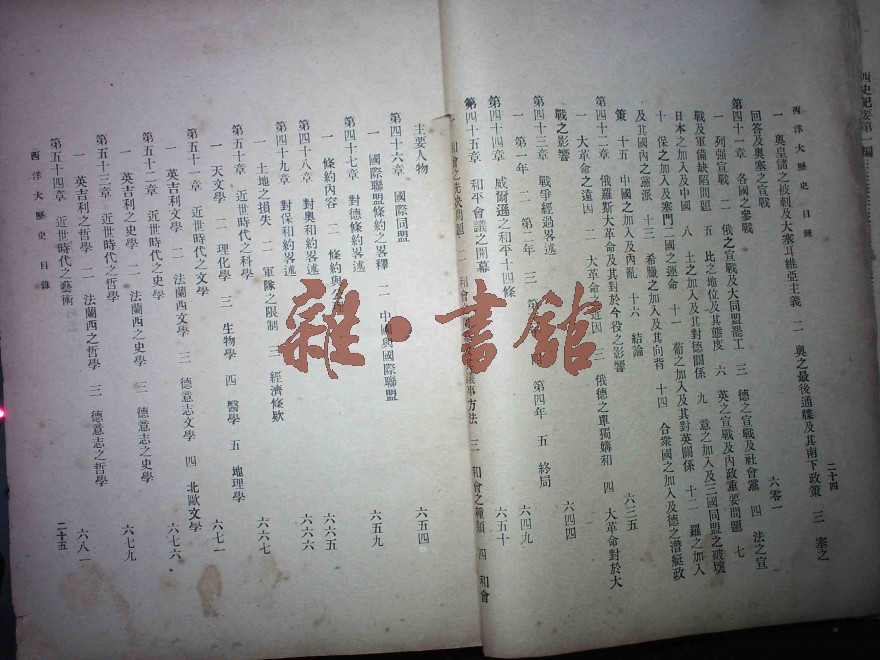 西史紀要第二編
西洋大歷史 目錄
二十四
一 奧皇儲之被刺及大塞耳維亞主義 二 奧之最後通牒及其南下政策 三 塞之
回答及奧塞之宣戰 六零一
第四十一章 各國之參戰
一 列強宣戰 二 俄之宣戰及大同盟罷工 三 德之宣戰及社會黨 四 法之宣
戰及軍備缺陷問題 五 比之地位及其態度 六 英之宣戰及內政重要問題 七
日本之加入及中國 八 土之加入及其對德關係 九 意之加入及三國同盟之破壞
十 保之加入及塞門二國之運命 十一 葡之加入及其對英關係 十二 羅之加入
及其國內之黨派 十三 希臘之加入及其向背 十四 合衆國之加入及德之潛艇政
策 十五 中國之加入及內亂 十六 結論 六三五
第四十二章 俄羅斯大革命及其對於今役之影響
一 大革命之遠因 二 大革命之近因 三 俄德之單獨媾和 四 大革命對於大
戰之影響 六四四
第四十三章 戰爭經過畧述
一 第一年 二 第二年 三 第 四 第四年 五 終局 六四九
第四十四章 威爾遜之和平十四條 六五十
第四十五章 和平會議之開幕
一 和會之先決問題 二 和會 議事方法 三 和會之種類 四 和會
主要人物 六五四
第四十六章 國際同盟
一 國際聯盟條約之畧釋 二 中國與國際聯盟 六五九
第四十七章 對德條約畧述
一 條約內容 二 條約與公 六六五
第四十八章 對奧和約畧述 六六六
第四十九章 對保和約畧述
一 土地之損失 二 軍隊之限制 三 經濟條欵 六六七
第五十章 近世時代之科學
一 天文學 二 理化學 三 生物學 四 醫學 五 地理學 六七一
第五十一章 近世時代之文學
一 英吉利文學 二 法蘭西文學 三 德意志文學 四 北歐文學 六七六
第五十二章 近世時代之史學
一 英吉利之史學 二 法蘭西之史學 三 德意志之史學 六七九
第五十三章 近世時代之哲學
一 英吉利之哲學 二 法蘭西之哲學 三 德意志之哲學 六八一
第五十四章 近世時代之藝術
西洋大歷史 目錄
二十五
雜·書館